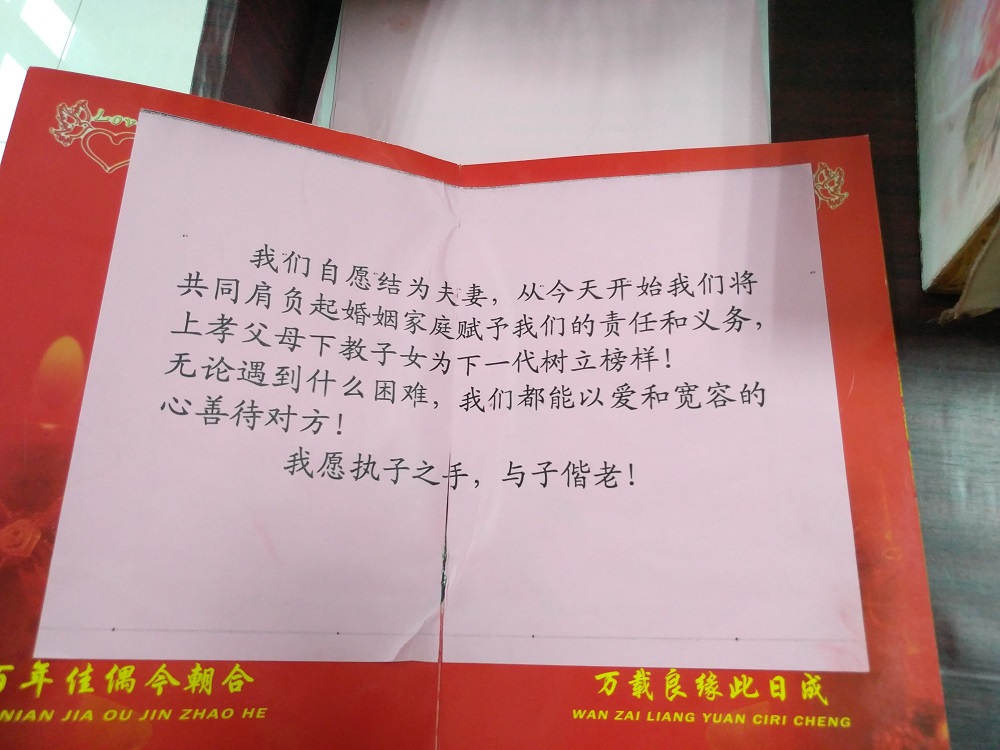 Lov
我们自愿结为夫妻，从今天开始我们将
共同肩负起婚姻家庭赋予我们的责任和义务，
上孝父母下教子女为下一代树立榜样！
无论遇到什么困难，我们都能以爱和宽容的
心善待对方！
我愿执子之手，与子偕老！
百年佳偶今朝合
NIAN JIA OU JIN ZHAO HE
万载良缘此日成
WAN ZAI LIANG YUAN CIRI CHENG